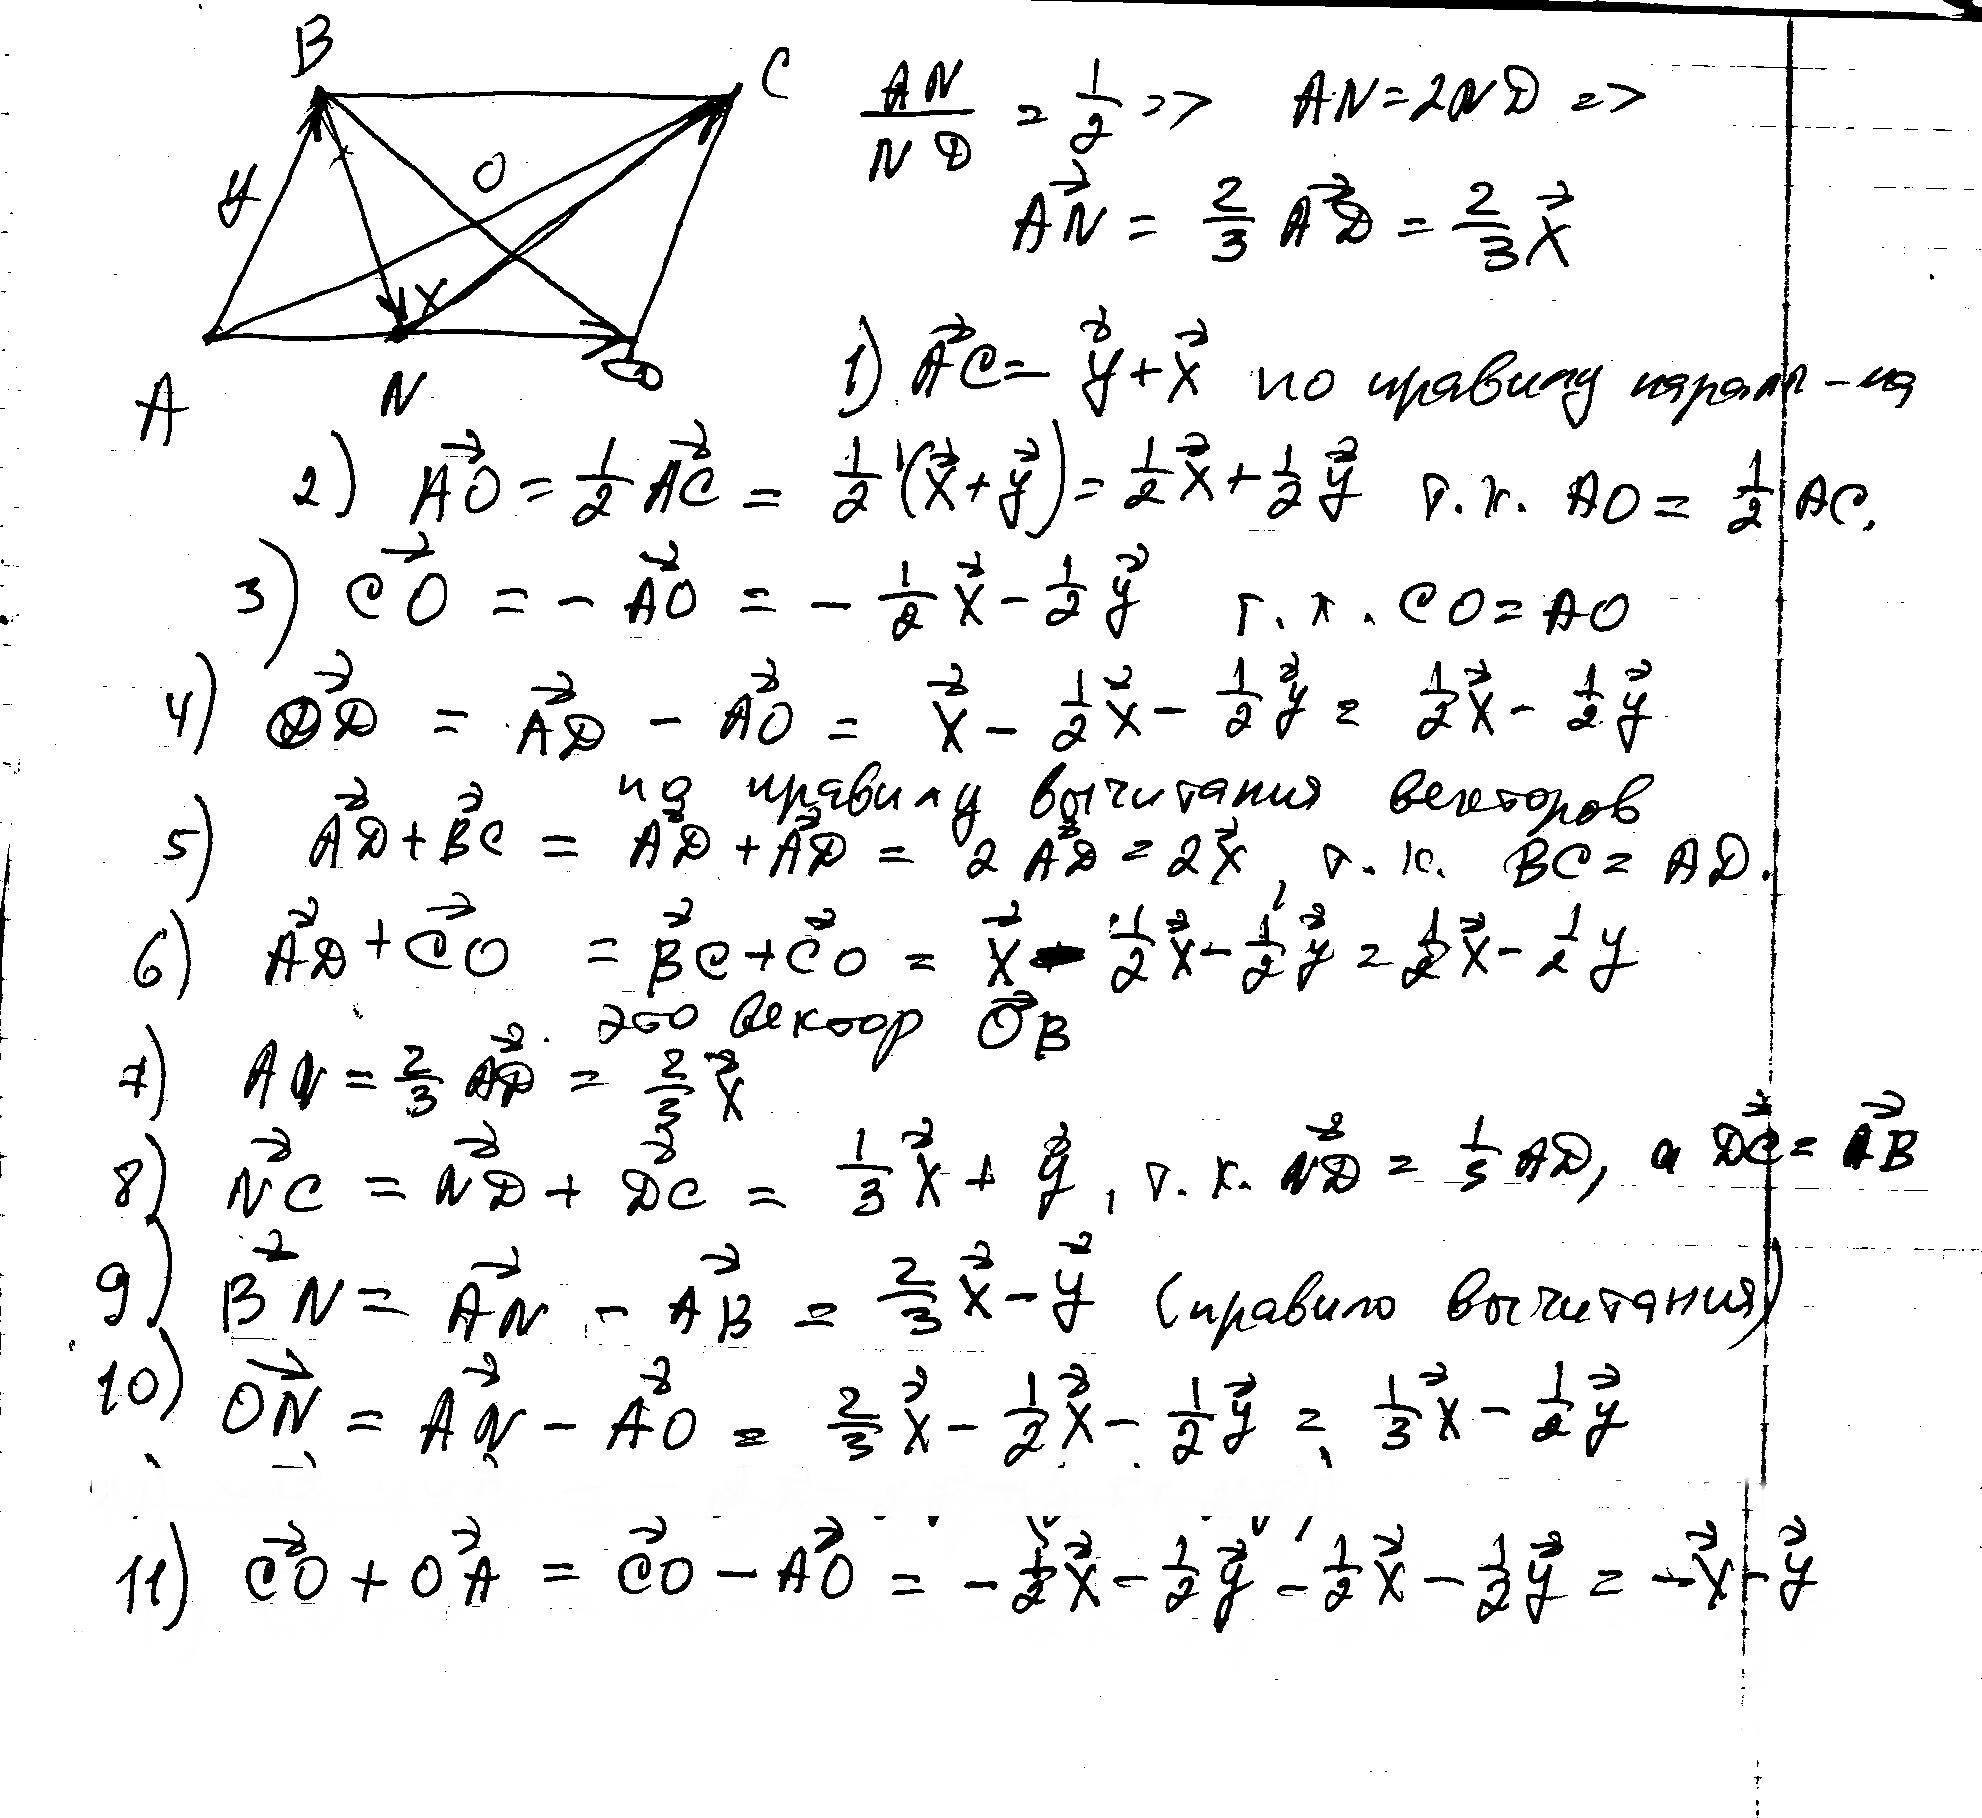 B
C
y
O
x
A
N
D
AN/ND = 1/2 => AN = 2ND =>
AN⃗ = 2/3 AD⃗ = 2/3 x⃗
1) AC⃗ = y⃗ + x⃗ по правилу парал-ма
2) AO⃗ = 1/2 AC⃗ = 1/2 (x⃗ + y⃗) = 1/2 x⃗ + 1/2 y⃗ т.к. AO = 1/2 AC.
3) CO⃗ = - AO⃗ = - 1/2 x⃗ - 1/2 y⃗ т.к. CO = AO
4) OD⃗ = AD⃗ - AO⃗ = x⃗ - 1/2 x⃗ - 1/2 y⃗ = 1/2 x⃗ - 1/2 y⃗
по правилу вычитания векторов
5) AD⃗ + BC⃗ = AD⃗ + AD⃗ = 2 AD⃗ = 2x⃗, т.к. BC = AD.
6) AD⃗ + CO⃗ = BC⃗ + CO⃗ = x⃗ - 1/2 x⃗ - 1/2 y⃗ = 1/2 x⃗ - 1/2 y
это вектор OB⃗
7) AN = 2/3 AD⃗ = 2/3 x⃗
8) NC⃗ = ND⃗ + DC⃗ = 1/3 x⃗ + y⃗, т.к. ND⃗ = 1/3 AD, а DC⃗ = AB⃗
9) BN⃗ = AN⃗ - AB⃗ = 2/3 x⃗ - y⃗ (правило вычитания)
10) ON⃗ = AN⃗ - AO⃗ = 2/3 x⃗ - 1/2 x⃗ - 1/2 y⃗ = 1/3 x⃗ - 1/2 y⃗
11) CO⃗ + OA⃗ = CO⃗ - AO⃗ = - 1/2 x⃗ - 1/2 y⃗ - 1/2 x⃗ - 1/2 y⃗ = - x⃗ - y⃗